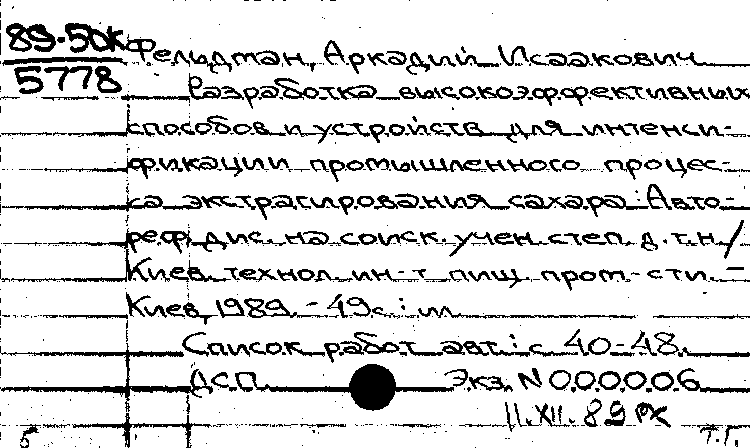 89-50К
5778
Фельдман, Аркадий Исаакович
Разработка высокоэффективных
способов и устройств для интенси-
фикации промышленного процес-
са экстрагирования сахара : Авто-
реф. дис. на соиск. учен. степ. д. т. н /
Киев. технол. ин-т пищ. пром-сти. -
Киев, 1989. - 49с. : ил
Список работ авт. : с 40-48.
ДСП. Экз. N 000006
11.XII.89
б Т.Г.